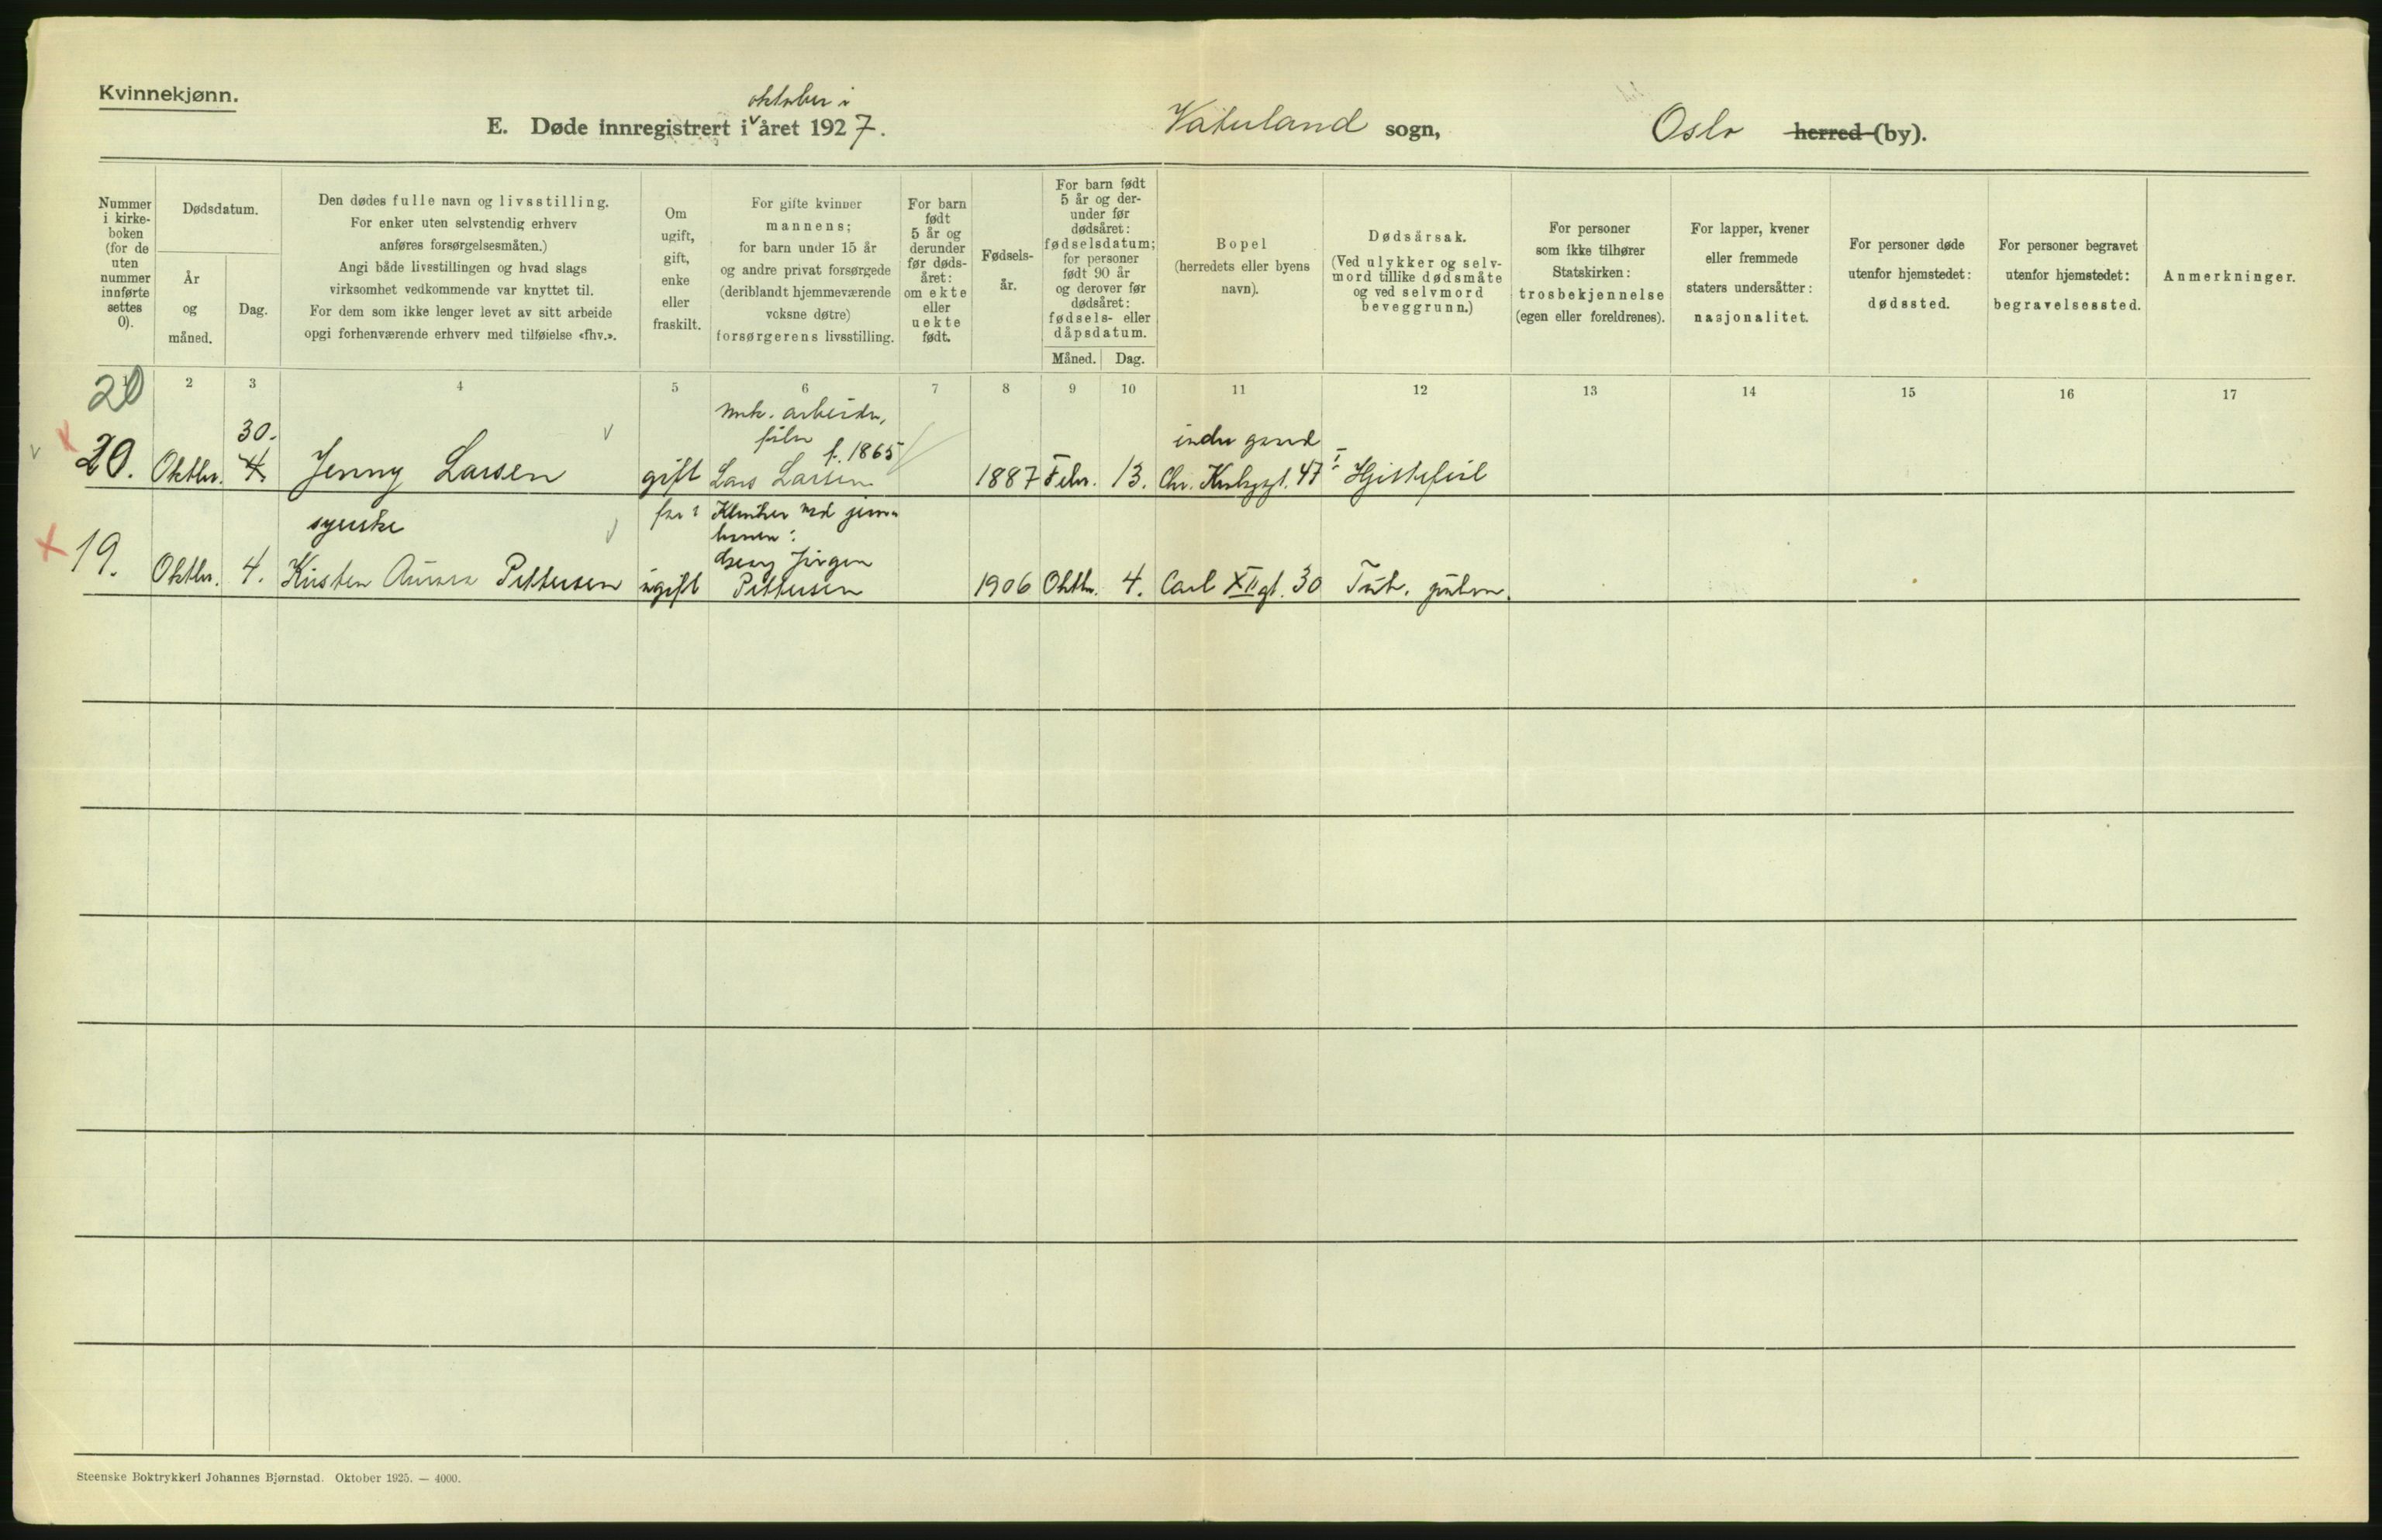 Kvinnekjønn.
oktober i
E. Døde innregistrert i året 1927.
Vaterland sogn,
Oslo herred (by).
Nummer i kirkeboken (for de uten nummer innførte settes 0).
Dødsdatum.
År og måned.
Dag.
Den dødes fulle navn og livsstilling.
For enker uten selvstendig erhverv
anføres forsørgelsesmåten.)
Angi både livsstillingen og hvad slags
virksomhet vedkommende var knyttet til.
For dem som ikke lenger levet av sitt arbeide
opgi forhenværende erhverv med tilføielse «fhv.».
Om
ugift,
gift,
enke
eller
fraskilt.
For gifte kvinner
mannens;
for barn under 15 år
og andre privat forsørgede
(deriblandt hjemmeværende
voksne døtre)
forsørgerens livsstilling.
For barn
født
5 år og
derunder
før døds-
året:
om ekte
eller
uekte
født.
Fødsels-
år.
For barn født
5 år og der-
under før
dødsåret:
fødselsdatum;
for personer
født 90 år
og derover før
dødsåret:
fødsels- eller
dåpsdatum.
Måned. Dag.
Bopel
(herredets eller byens
navn).
Dødsårsak.
(Ved ulykker og selv-
mord tillike dødsmåte
og ved selvmord
beveggrunn.)
For personer
som ikke tilhører
Statskirken:
trosbekjennelse
(egen eller foreldrenes).
For lapper, kvener
eller fremmede
staters undersåtter:
nasjonalitet.
For personer døde
utenfor hjemstedet:
dødssted.
For personer begravet
utenfor hjemstedet:
begravelsessted.
Anmerkninger.
1 2 3 4 5 6 7 8 9 10 11 12 13 14 15 16 17
20
mek. arbeider,
filer
f. 1865
30.
indre gaard
20. Oktbr. 4. Jenny Larsen gift Lars Larsen 1887 Febr. 13. Chr. Krohgsgt. 47 I Hjertefeil
syerske
far: Klinker ved jern-
banen:
Georg Jørgen
19. Oktbr. 4. Kirsten Aurora Pettersen ugift Pettersen 1906 Oktbr. 4. Carl XII gt. 30 Tub. pulm.
Steenske Boktrykkeri Johannes Bjørnstad. Oktober 1925. — 4000.